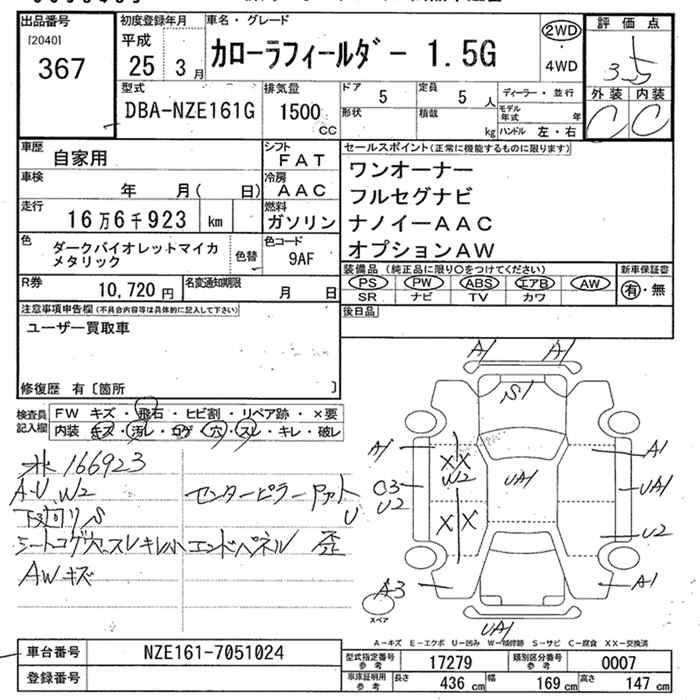 出品番号
[2040]
367
初度登録年月
平成
25 3月
車名・グレード
カローラフィールダー 1.5G
2WD
・
4WD
評価点
3.5
外装 内装
C C
型式
DBA-NZE161G
排気量
1500
cc
ドア 5
定員 5 人
形状
積載 kg
ディーラー・並行
モデル年式 年
ハンドル 左・右
車歴
自家用
シフト
FAT
車検
年 月( 日)
冷房
AAC
走行
16万6千923 km
燃料
ガソリン
色
ダークバイオレットマイカ
メタリック
色替
色コード
9AF
R券
10,720円
名変通知期限
月 日
セールスポイント(正常に機能するものに限ります)
ワンオーナー
フルセグナビ
ナノイーAAC
オプションAW
装備品(純正品に限り○をつけてください)
PS PW ABS エアB AW
SR ナビ TV カワ
新車保証書
有・無
後日品
注意事項申告欄(不具合内容等は具体的に記入して下さい)
ユーザー買取車
修復歴 有〔箇所 〕
検査員
記入欄
FW キズ・飛石・ヒビ割・リペア跡・×要
内装 キズ・汚レ・コゲ・穴・スレ・キレ・破レ
166923
A-U、W2
下回りS
シートコゲ穴スレキレ
AWキズ
センターピラー
U
エンドパネル 歪
A1 A1
S1
A1
XX
W2
A1
O3
U2
UA1
UA1
X X
U2
A3
A1
UA1
スペア
A-キズ E-エクボ U-凹み W-補修跡 S-サビ C-腐食 XX-交換済
車台番号
NZE161-7051024
登録番号
型式指定番号
参考
17279
類別区分番号
参考
0007
車庫証明用
参考
長さ 436 cm
幅 169 cm
高さ 147 cm